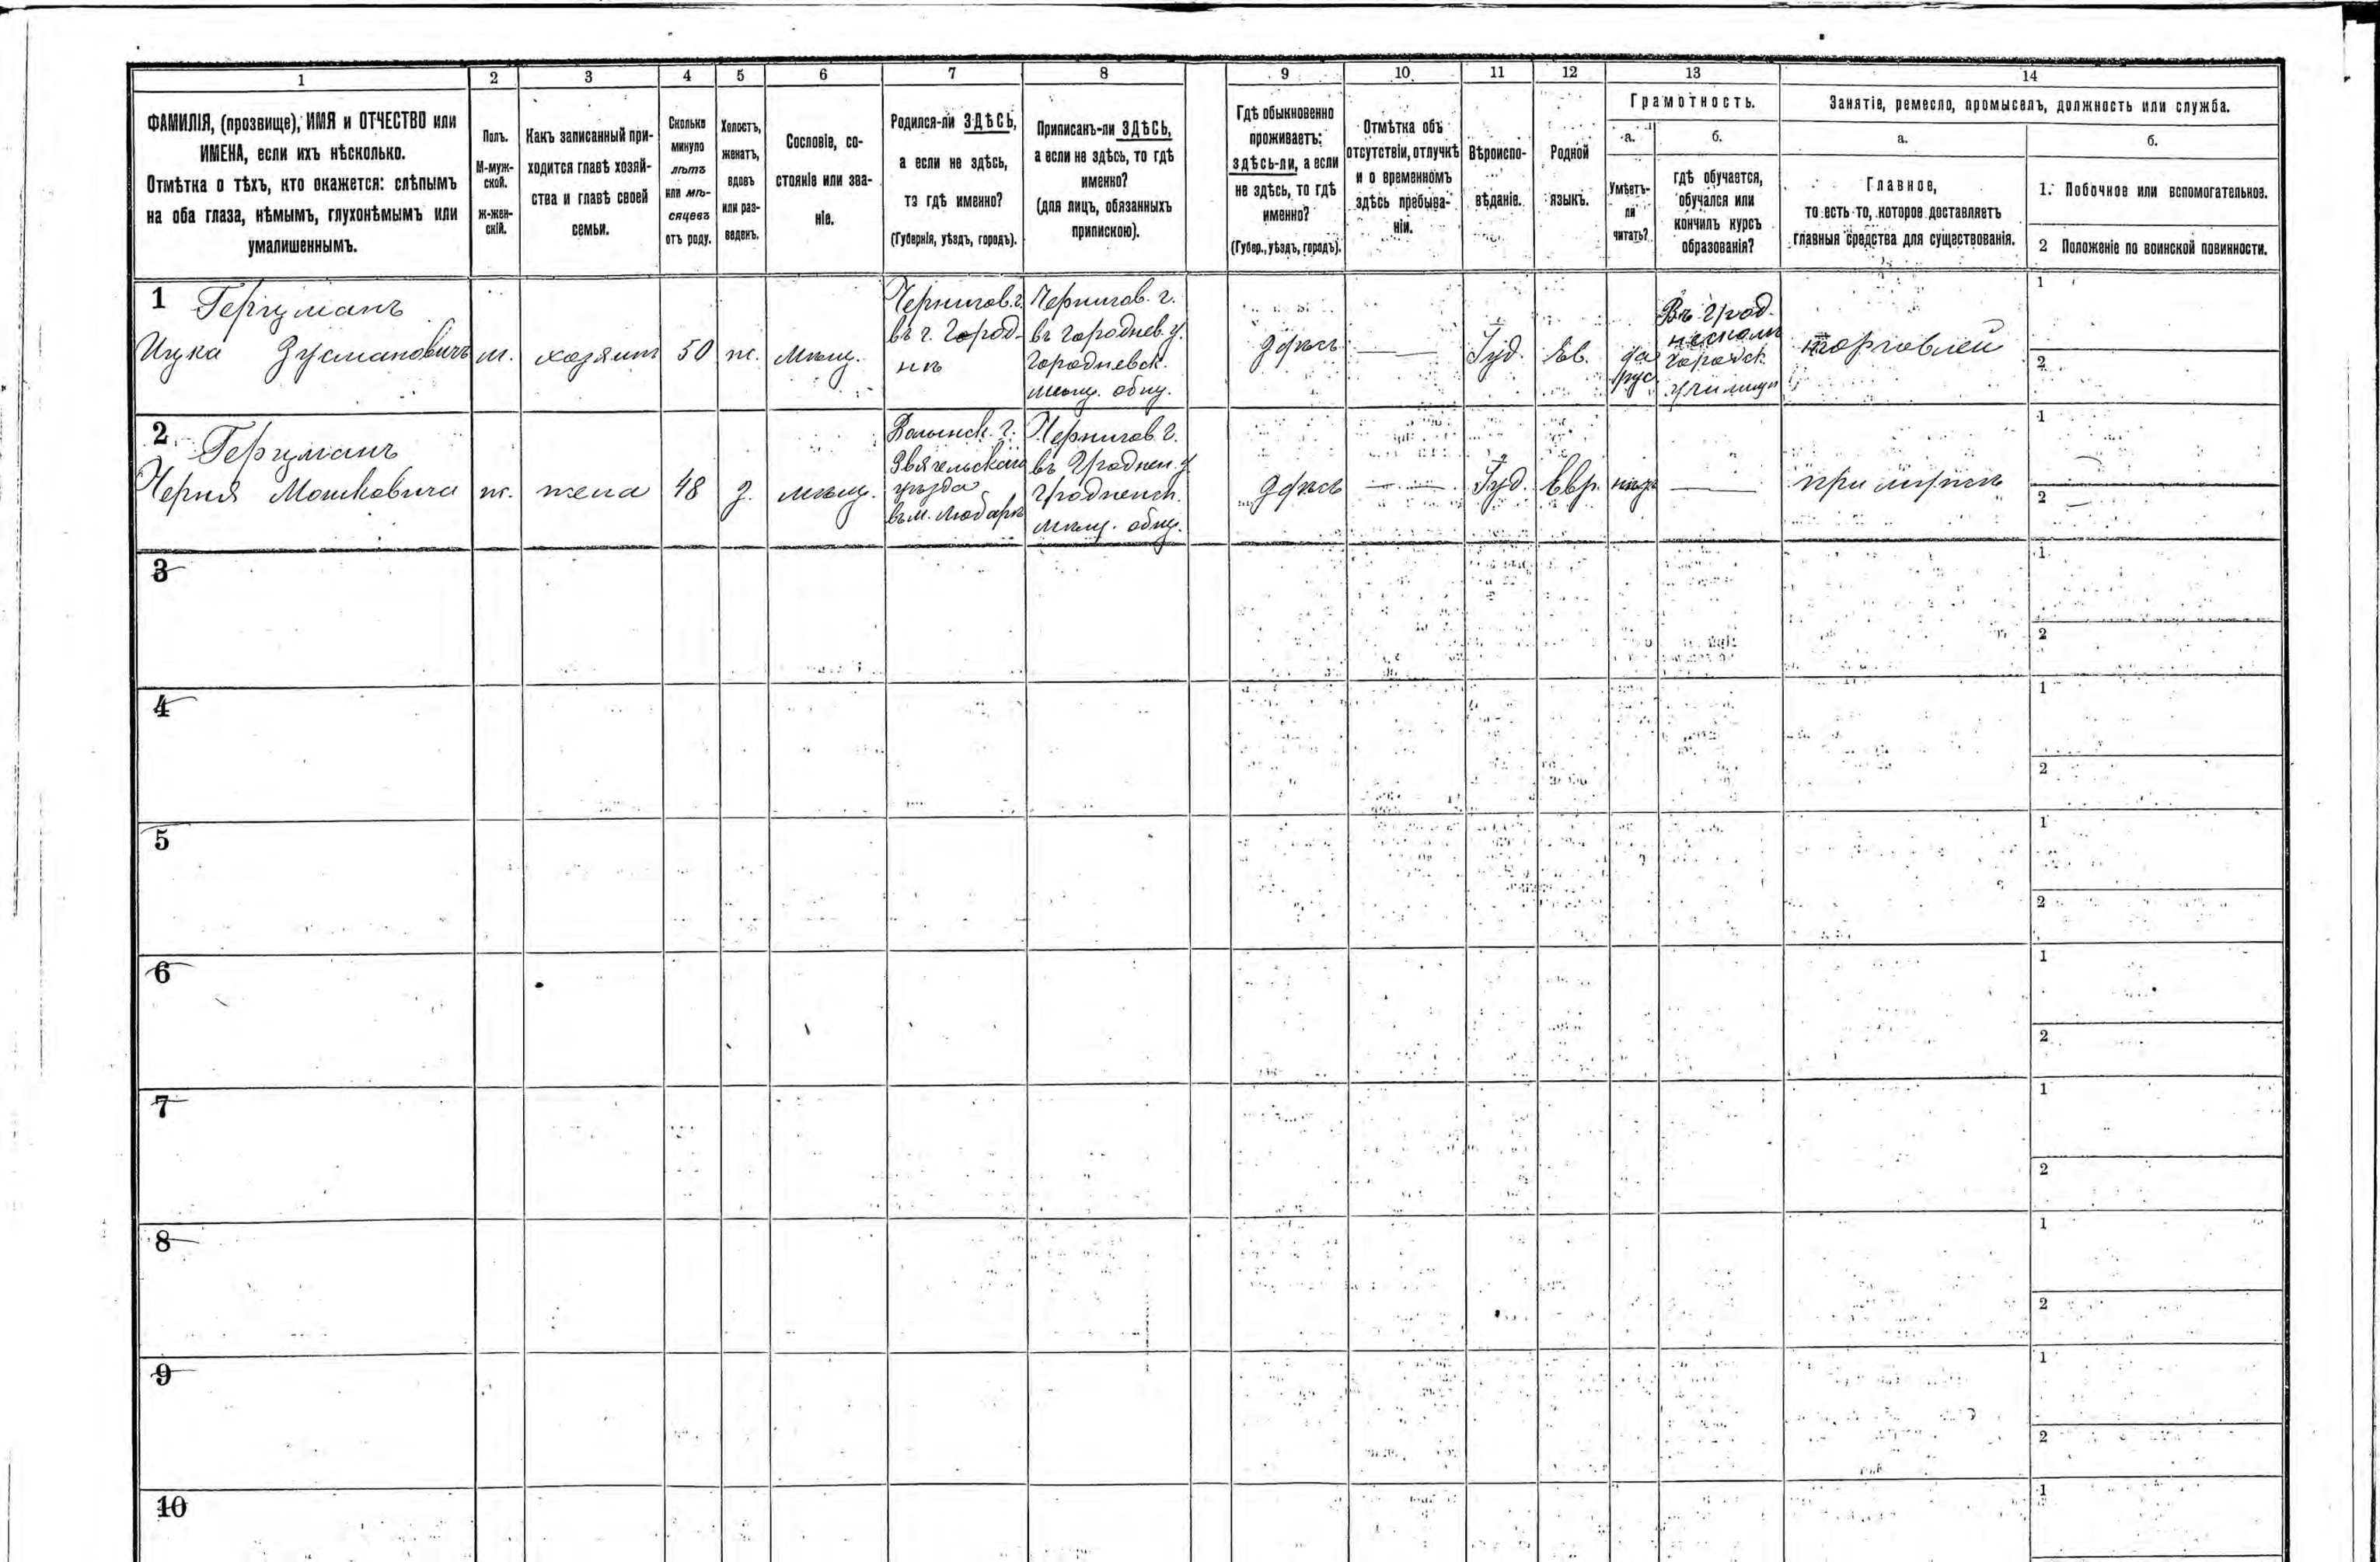 1 2 3 4 5 6 7 8 9 10 11 12 13 14
ФАМИЛІЯ, (прозвище), ИМЯ и ОТЧЕСТВО или
ИМЕНА, если ихъ нѣсколько.
Отмѣтка о тѣхъ, кто окажется: слѣпымъ
на оба глаза, нѣмымъ, глухонѣмымъ или
умалишеннымъ.
Полъ.
М-муж-
ской.
ж-жен-
скій.
Какъ записанный при-
ходится главѣ хозяй-
ства и главѣ своей
семьи.
Сколько
минуло
лѣтъ
или мѣ-
сяцевъ
отъ роду.
Холостъ,
женатъ,
вдовъ
или раз-
веденъ.
Сословіе, со-
стояніе или зва-
ніе.
Родился-ли ЗДѢСЬ,
а если не здѣсь,
то гдѣ именно?
(Губернія, уѣздъ, городъ).
Приписанъ-ли ЗДѢСЬ,
а если не здѣсь, то гдѣ
именно?
(для лицъ, обязанныхъ
припискою).
Гдѣ обыкновенно
проживаетъ:
здѣсь-ли, а если
не здѣсь, то гдѣ
именно?
(Губер., уѣздъ, городъ).
Отмѣтка объ
отсутствіи, отлучкѣ
и о временномъ
здѣсь пребыва-
ніи.
Вѣроиспо-
вѣданіе.
Родной
языкъ.
Грамотность.
а.
Умѣетъ-
ли
читать?
б.
гдѣ обучается,
обучался или
кончилъ курсъ
образованія?
Занятіе, ремесло, промыселъ, должность или служба.
а.
Главное,
то есть то, которое доставляетъ
главныя средства для существованія.
б.
1. Побочное или вспомогательное.
2 Положеніе по воинской повинности.
1 Герцманъ
Ицка Зусмановичъ
м.
хозяинъ
50
ж.
мѣщ.
Чернигов. г.
въ г. Город-
нѣ
Чернигов. г.
въ Городнев. у.
Городневск.
мѣщ. общ.
здѣсь
—
Іуд.
Ев.
да
рус
городск.
училищѣ
торговлей
1
2
2 Герцманъ
Черня Мошковича
ж.
жена
48
з.
мѣщ.
Волынск. г.
Звягельскаго
уѣзда
въ м. Любарѣ
Чернигов. г.
мѣщ. общ.
здѣсь
—
Іуд.
Евр.
—
при мужѣ
1
2
3
1
2
4
1
2
5
1
2
6
1
2
7
1
2
8
1
2
9
1
2
10
1